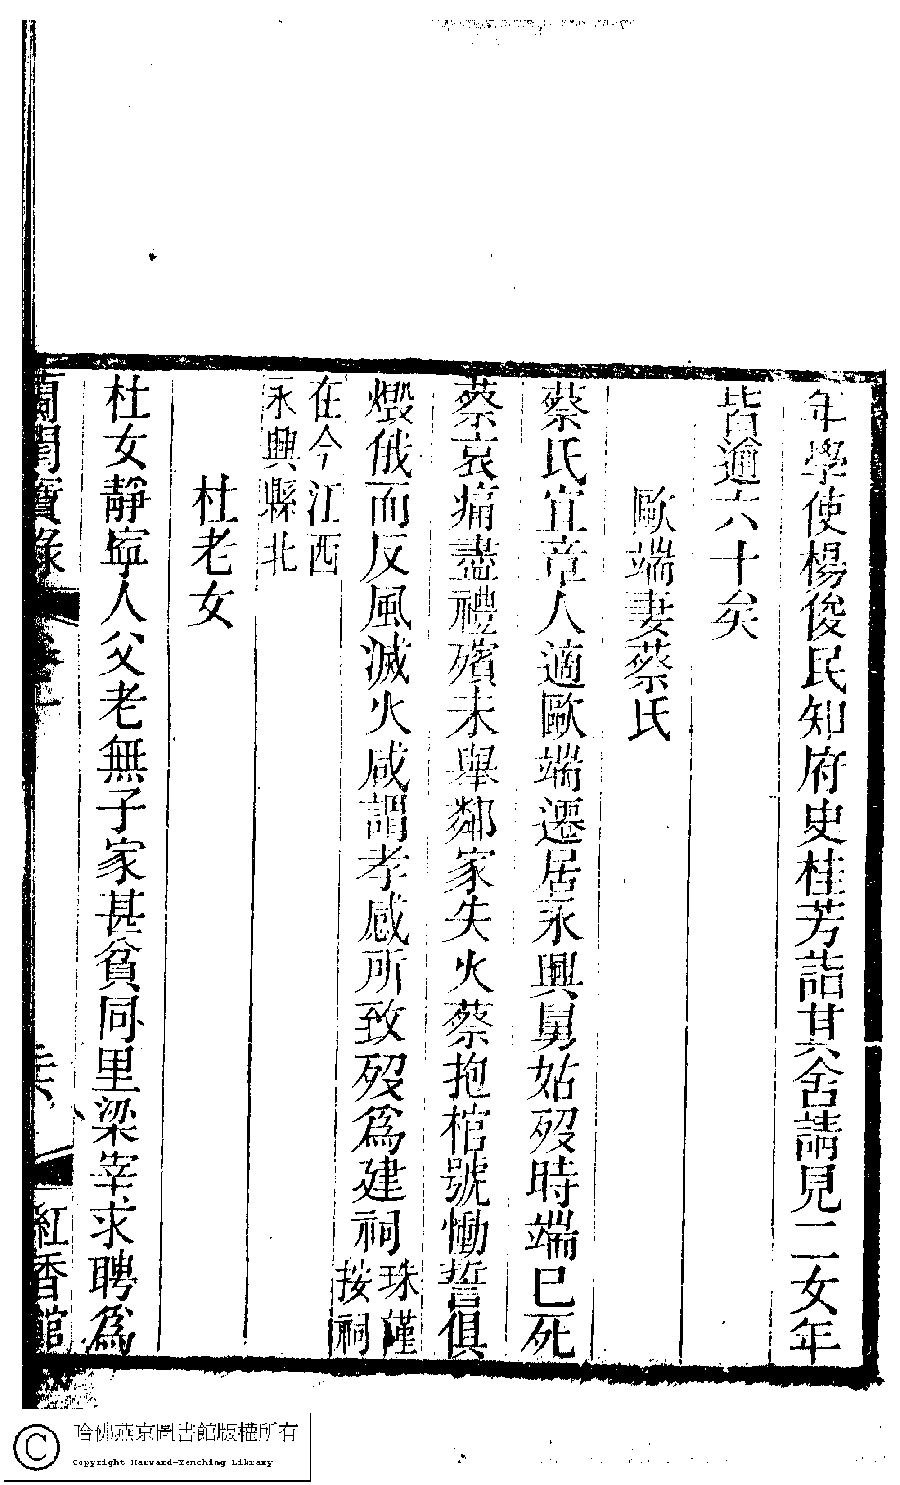 年學使楊俊民知府史桂芳詣其舍請見二女年
皆逾六十矣
歐端妻蔡氏
蔡氏宜章人適歐端遷居永興舅姑歿時端已死
蔡哀痛盡禮殯未舉鄰家失火蔡抱棺號慟誓俱
燬俄而反風滅火咸謂孝感所致歿爲建祠珠謹按祠
在今江西永興縣北
杜老女
杜女靜寧人父老無子家甚貧同里梁宰求聘爲
蘭閨寶錄
卷一
六
紅香館
哈佛燕京圖書館版權所有
Copyright Harvard-Yenching Library